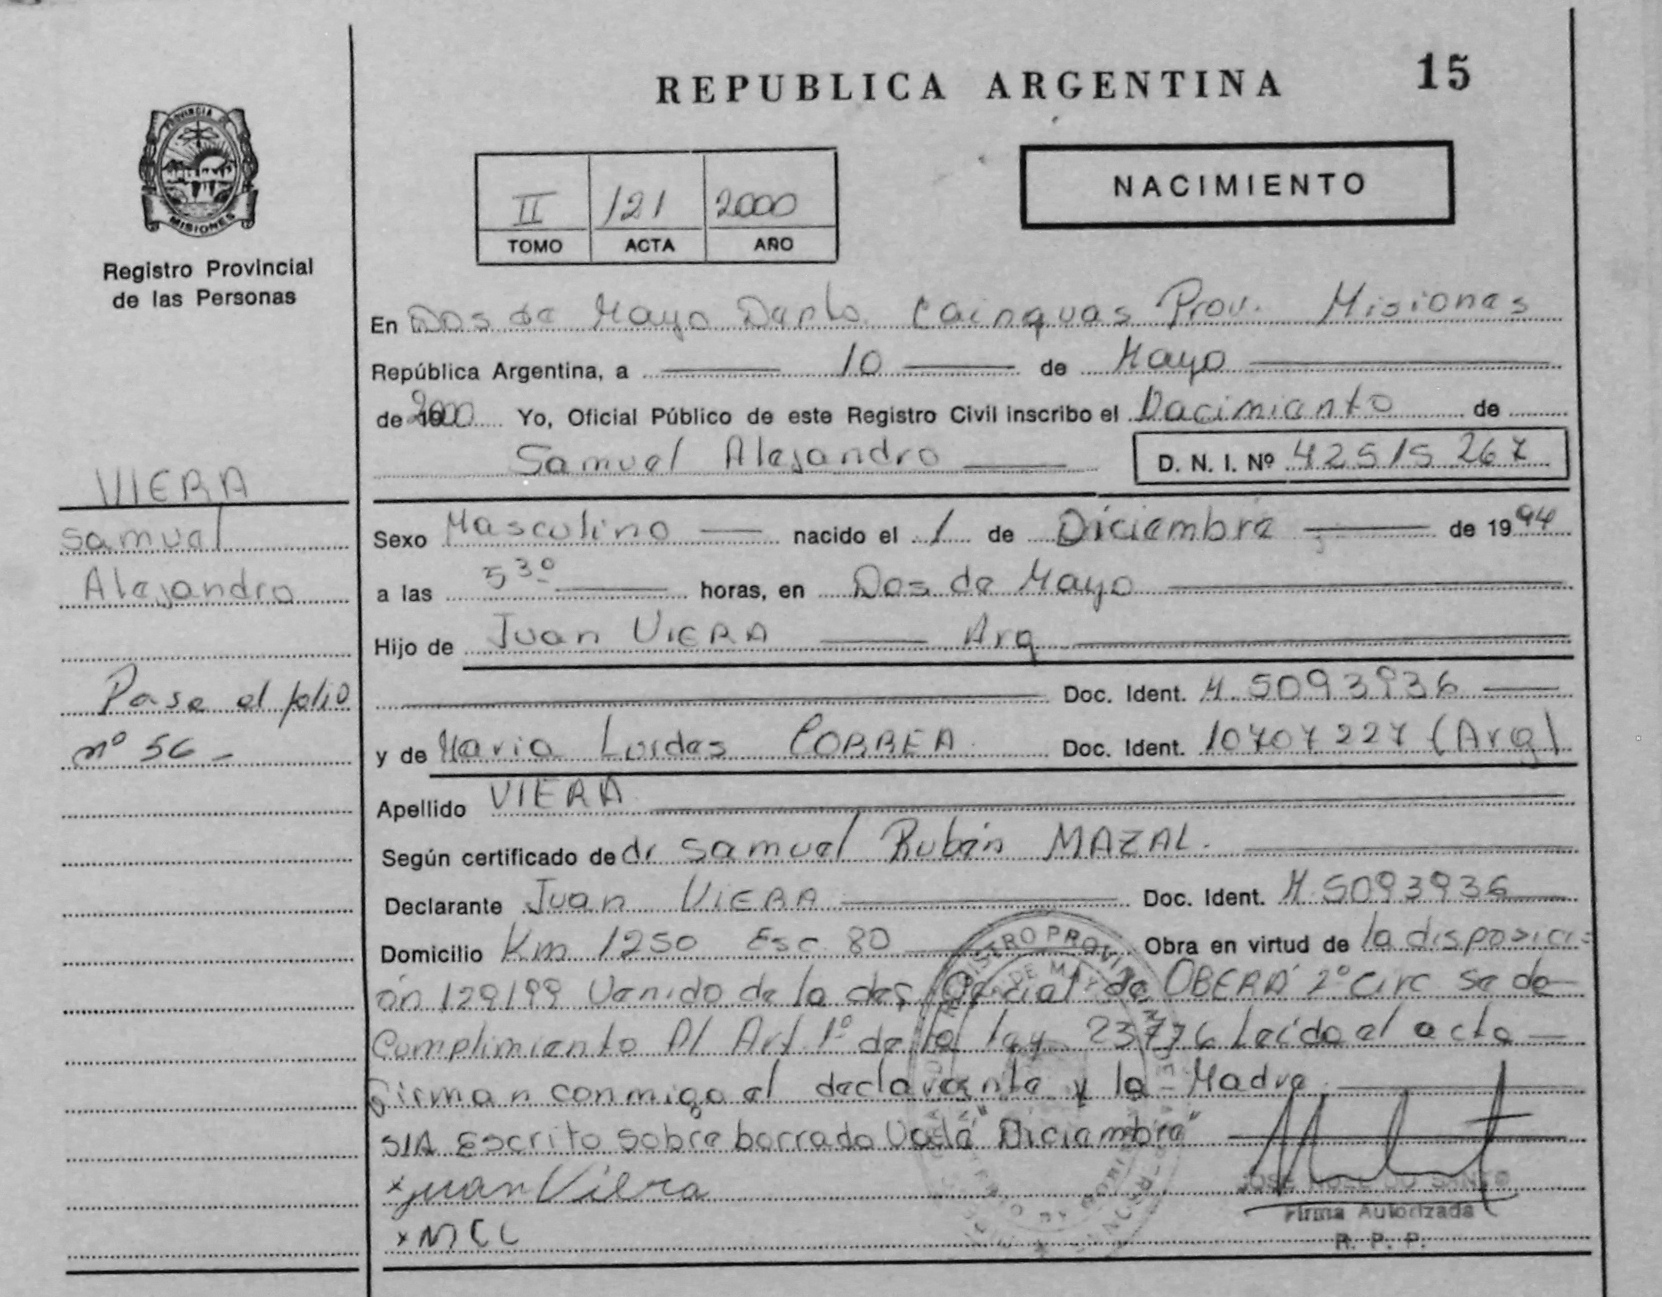 REPUBLICA ARGENTINA 15
PROVINCIA DE
MISIONES
Registro Provincial
de las Personas
II 121 2000
TOMO ACTA AÑO
NACIMIENTO
En Dos de Mayo Dpto. Cainguas Prov. Misiones
República Argentina, a 10 de Mayo
de 2000 Yo, Oficial Público de este Registro Civil inscribo el Nacimiento de
Samuel Alejandro D. N. I. Nº 42515267
VIERA
Samuel
Alejandro
Pase al folio
nº 56
Sexo Masculino nacido el 1 de Diciembre de 1994
a las 5 30 horas, en Dos de Mayo
Hijo de Juan VIERA Arg
Doc. Ident. M. 5093936
y de Maria Lordes CORREA Doc. Ident. 10707227 (Arg)
Apellido VIERA
Según certificado de dr Samuel Rubén MAZAL.
Declarante Juan VIERA Doc. Ident. M. 5093936
Domicilio Km 1250 Esc. 80 Obra en virtud de la disposici
ón 129/99 Venido de la de OBERÁ 2º Circ se da
Cumplimiento Al Art 1º de la ley 23776 Leída el acta
firman conmigo el declarante y la Madre.
S/A Escrito sobre borrado "Diciembre"
x Juan Viera
x M C L
Firma Autorizada
R. P. P.